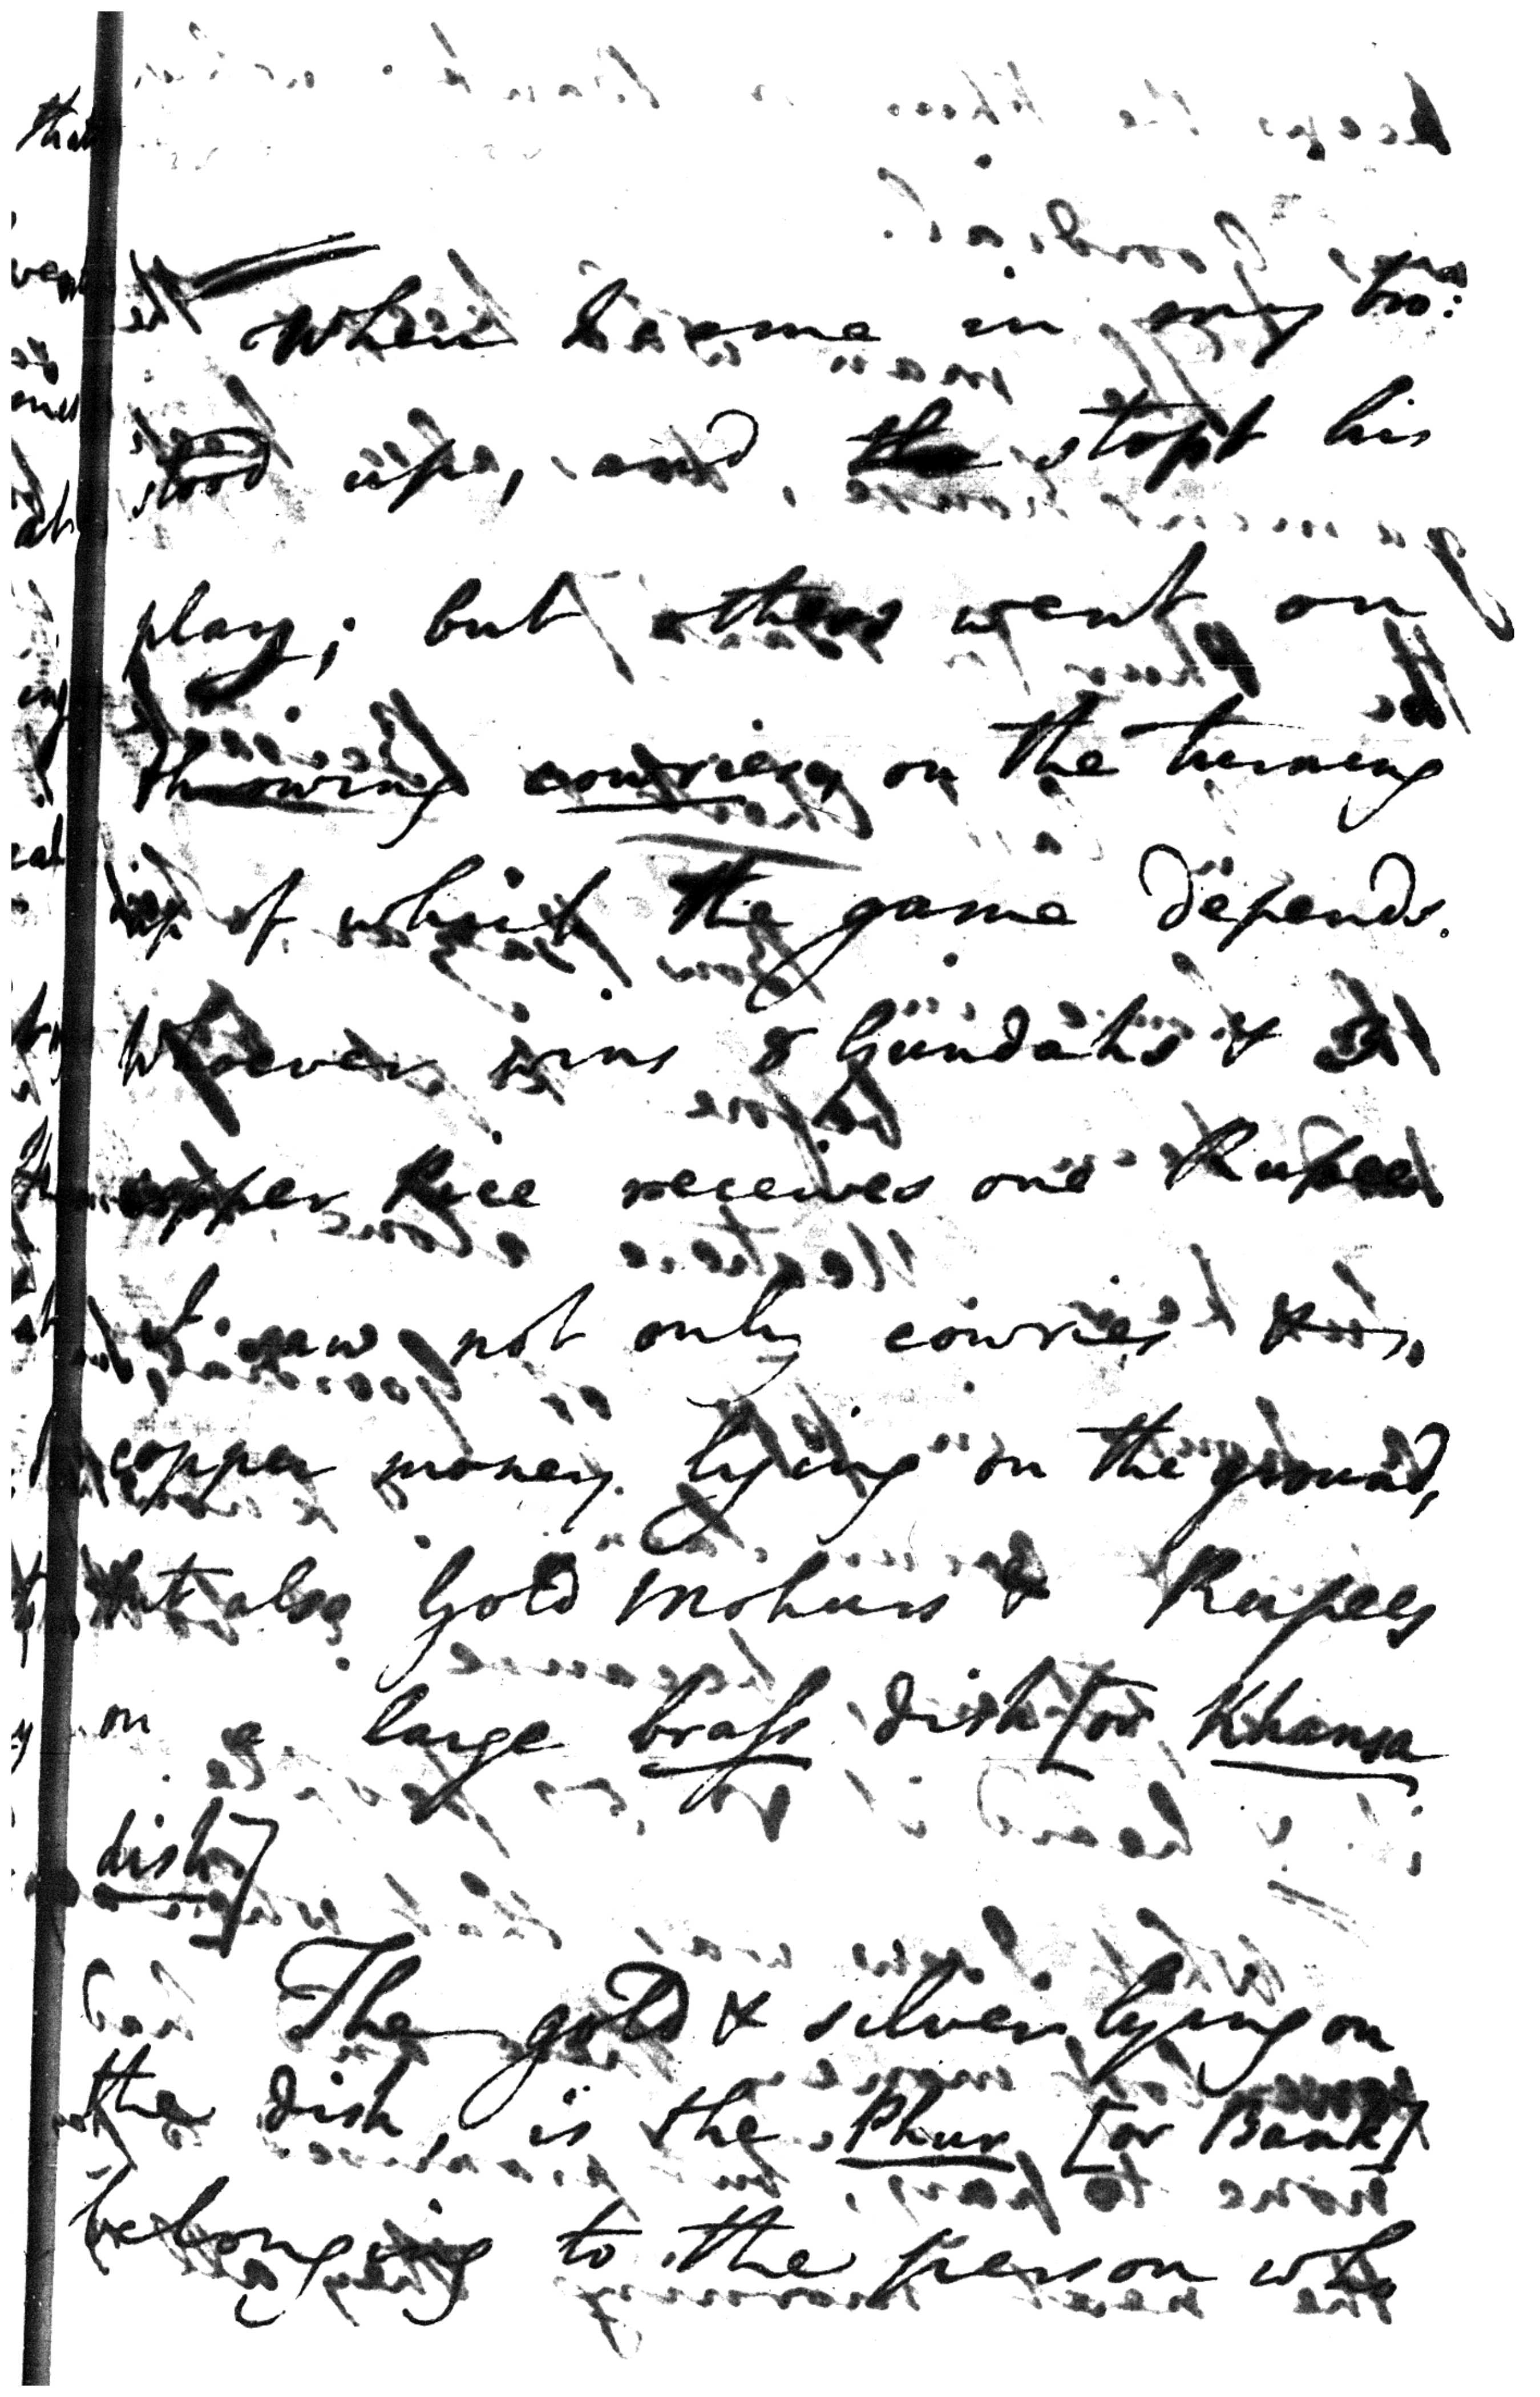 When I came in my bro:
stood up, and stopt his
play; but others went on
throwing cowries, on the turning
up of which the game depends.
Whoever wins 8 Gundahs &
copper Pice receives one Rupee
I saw not only cowries &
copper money lying on the ground,
but also Gold Mohurs & Rupees
on a large brass dish [or Khansa
dish]
The gold & silver lying on
the dish, is the Phur [or Bank]
belonging to the person who